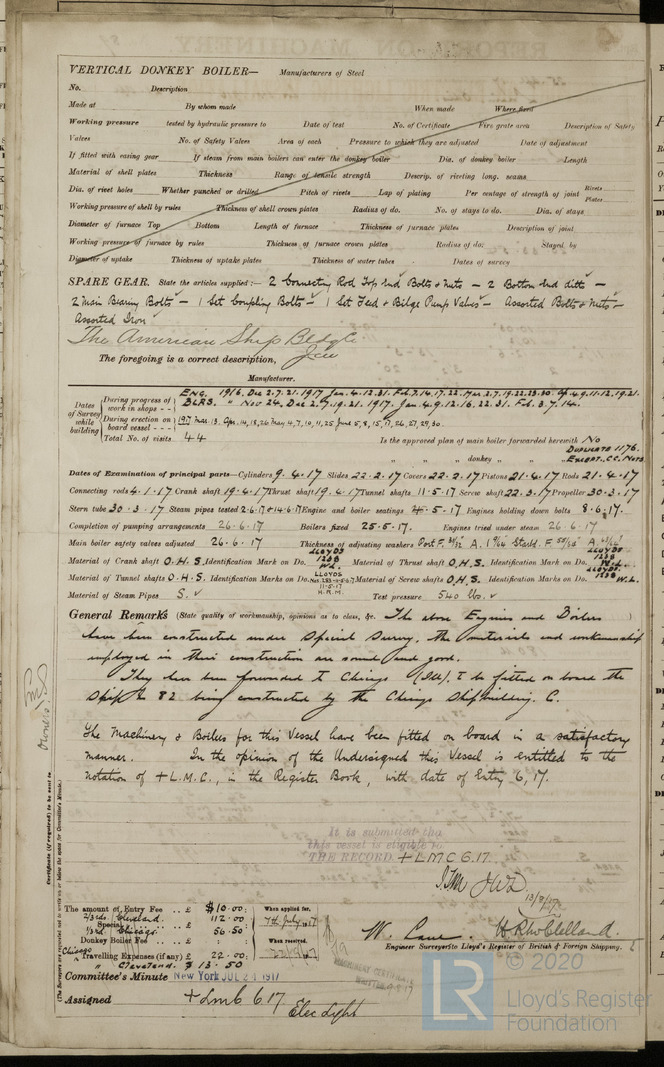 VERTICAL DONKEY BOILER— Manufacturers of Steel
No. Description
Made at By whom made When made Where fixed
Working pressure tested by hydraulic pressure to Date of test No. of Certificate Fire grate area Description of Safety
Valves No. of Safety Valves Area of each Pressure to which they are adjusted Date of adjustment
If fitted with easing gear If steam from main boilers can enter the donkey boiler Dia. of donkey boiler Length
Material of shell plates Thickness Range of tensile strength Descrip. of riveting long. seams
Dia. of rivet holes Whether punched or drilled Pitch of rivets Lap of plating Per centage of strength of joint Rivets Plates
Working pressure of shell by rules Thickness of shell crown plates Radius of do. No. of stays to do. Dia. of stays
Diameter of furnace Top Bottom Length of furnace Thickness of furnace plates Description of joint
Working pressure of furnace by rules Thickness of furnace crown plates Radius of do. Stayed by
Diameter of uptake Thickness of uptake plates Thickness of water tubes Dates of survey
SPARE GEAR. State the articles supplied:— 2 Connecting Rod Top End Bolts & Nuts — 2 Bottom End ditto —
2 Main Bearing Bolts — 1 Set Coupling Bolts — 1 Set Feed & Bilge Pump Valves — Assorted Bolts & Nuts —
Assorted Iron
The American Ship Bldg Co
The foregoing is a correct description,
Manufacturer.
Dates of Survey while building
During progress of work in shops - - ENG. 1916. Dec 2.7.21. 1917 Jan. 4.12.31. Feb. 7.14.17.22. Mar. 2.7.19.22.23.30. Ap. 4.9.11.12.19.21.
BLRS. " Nov 24. Dec 2.7.19.21. 1917. Jan 4.9.12.16.22.31. Feb. 3.7.14.
During erection on board vessel - - - 1917 Mar. 13. Apr. 14,18,26 May 4,7,10,11,25 June 5,8,15,17,26,27,29,30.
Total No. of visits 44 Is the approved plan of main boiler forwarded herewith No
DUPLICATE 1176.
" " " donkey " " " EXCEPT. CC. Nots.
Dates of Examination of principal parts—Cylinders 9.4.17 Slides 22.2.17 Covers 22.2.17 Pistons 21.4.17 Rods 21.4.17
Connecting rods 4.1.17 Crank shaft 19.4.17 Thrust shaft 19.4.17 Tunnel shafts 11.5.17 Screw shaft 22.3.17 Propeller 30.3.17
Stern tube 30.3.17 Steam pipes tested 2.6.17 & 14.6.17 Engine and boiler seatings 4.5.17 Engines holding down bolts 8.6.17.
Completion of pumping arrangements 26.6.17 Boilers fixed 25.5.17. Engines tried under steam 26.6.17
Main boiler safety valves adjusted 26.6.17 Thickness of adjusting washers
Material of Crank shaft O.H.S. Identification Mark on Do. LLOYDS 1238 W.L. Material of Thrust shaft O.H.S. Identification Mark on Do. LLOYDS 1238 W.L.
Material of Tunnel shafts O.H.S. Identification Marks on Do. LLOYDS 11-5-17 H.R.M. Material of Screw shafts O.H.S. Identification Marks on Do. LLOYDS 1238 W.L.
Material of Steam Pipes S. Test pressure 540 lbs.
General Remarks (State quality of workmanship, opinions as to class, &c. The above Engines and Boilers
have been constructed under Special Survey. The materials and workmanship
employed in their construction are sound and good.
They have been forwarded to Chicago (Ills). to be fitted on board the
Ship No 82 being constructed by the Chicago Shipbuilding Co.
The Machinery & Boilers for this Vessel have been fitted on board in a satisfactory
manner. In the opinion of the Undersigned this Vessel is entitled to the
notation of + L.M.C., in the Register Book, with date of Entry 6,17.
It is submitted that
this vessel is eligible for
THE RECORD. + LMC 6.17.
Certificate (if required) to be sent to Owners
(The Surveyors are requested not to write on or below the space for Committee's Minute.)
The amount of Entry Fee .. £ $10.00 When applied for,
2/3rds Cleveland Special .. £ 112.00 7th July 1917
1/3rd Chicago 56.50
Donkey Boiler Fee .. £ When received,
Chicago Travelling Expenses (if any) £ 22.00
" Cleveland. $ 13.50
Engineer Surveyor to Lloyd's Register of British & Foreign Shipping.
Committee's Minute New York JUL 24 1917
Assigned + LMC 6.17
Elec Light
LR
© 2020
Lloyd's Register
Foundation